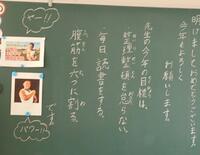 明けましておめでとうございます。
今年もよろしく
お願いします。
先生の今年の目標は、
整理整頓を怠らない。
毎日読書をする。
腹筋を六つに割る。
です。
ヤー!!
パワー!!